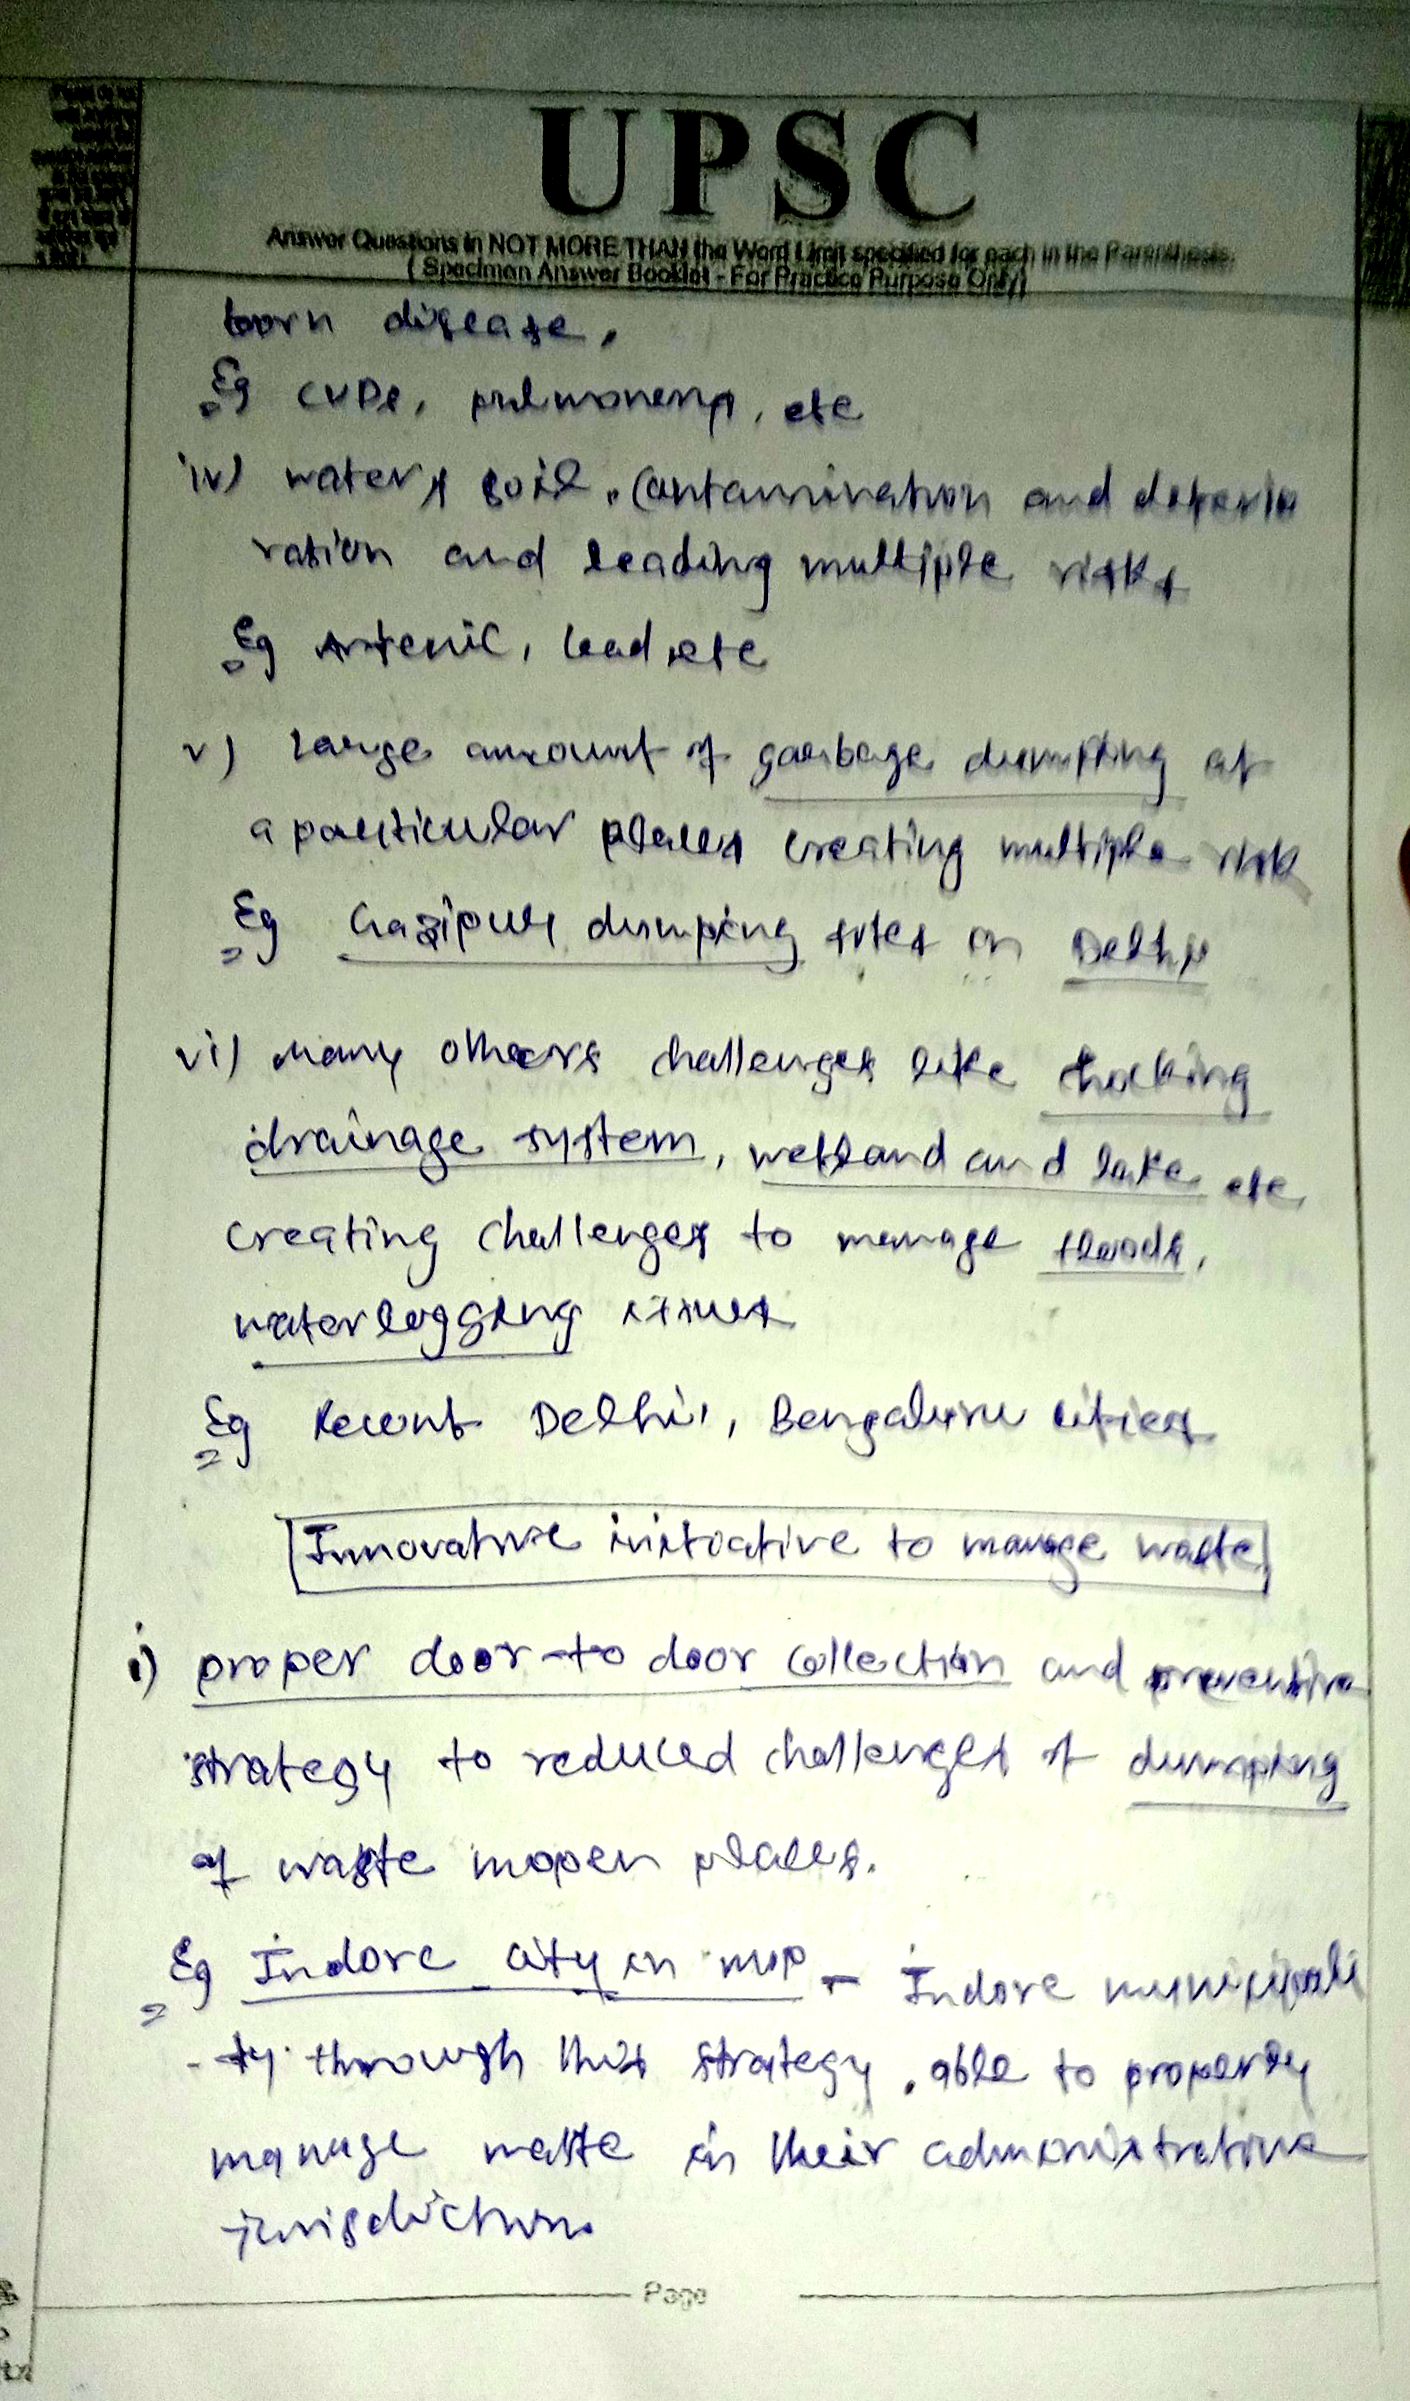 UPSC
Answer Questions in NOT MORE THAN the Word Limit specified for each in the Parenthesis.
( Specimen Answer Booklet - For Practice Purpose Only)
born disease.
Eg CVDs, pulmonery, etc
iv) water, soil. Contamination and deterio
ration and leading multiple risks
Eg Arsenic, lead, etc
v) Large amount of garbage dumping at
a particular places creating multiple risk
Eg Gazipur dumping sites in Delhi
vi) Many others challenges like chocking
drainage system, wetland and lake etc
creating challenges to manage floods,
waterlogging issues
Eg Recent Delhi, Bengaluru cities
Innovative initiative to manage waste
i) proper door-to door collection and preventive
strategy to reduced challenges of dumping
of waste in open places.
Eg Indore city in MP - Indore municipali
-ty through this strategy. able to properly
manage waste in their administrative
jurisdiction.
Page